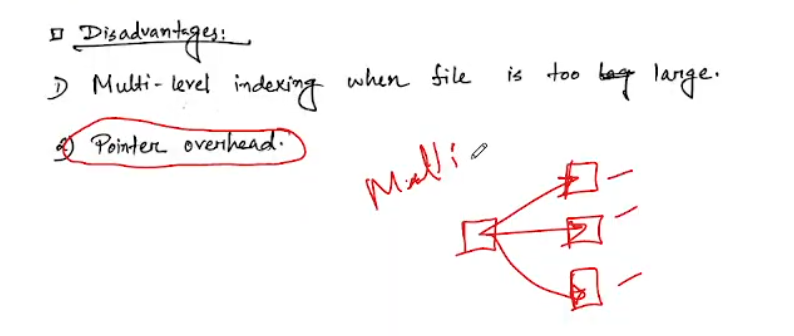 Disadvantages:
1) Multi-level indexing when file is too large.
2) Pointer overhead.
Multi